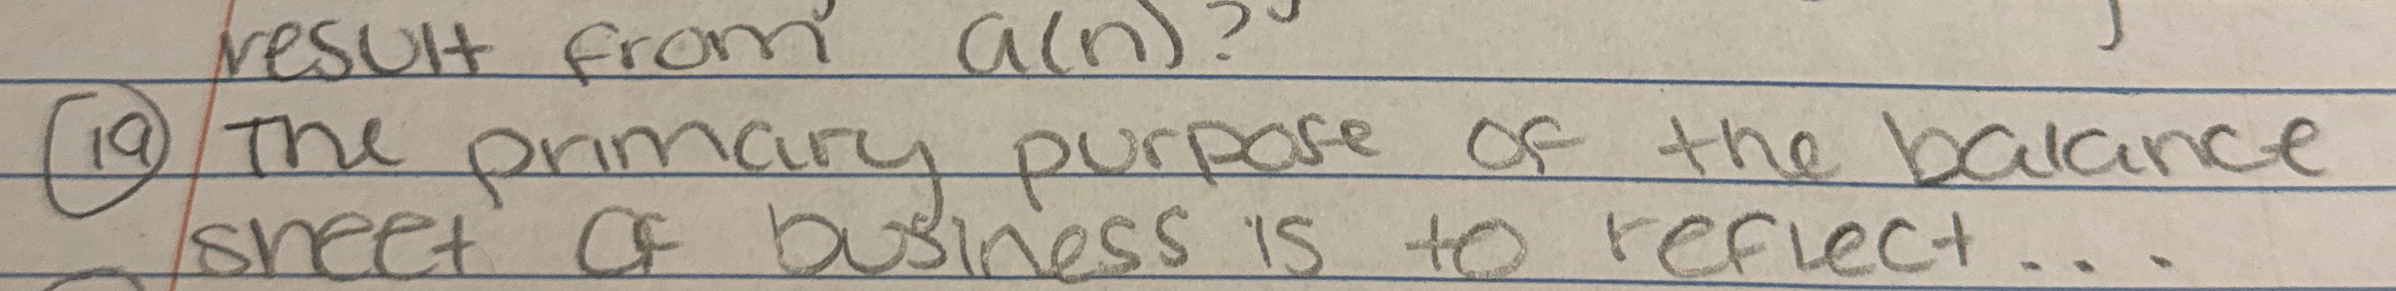 result from a(n)?
19 The primary purpose of the balance
sheet of business is to reflect...